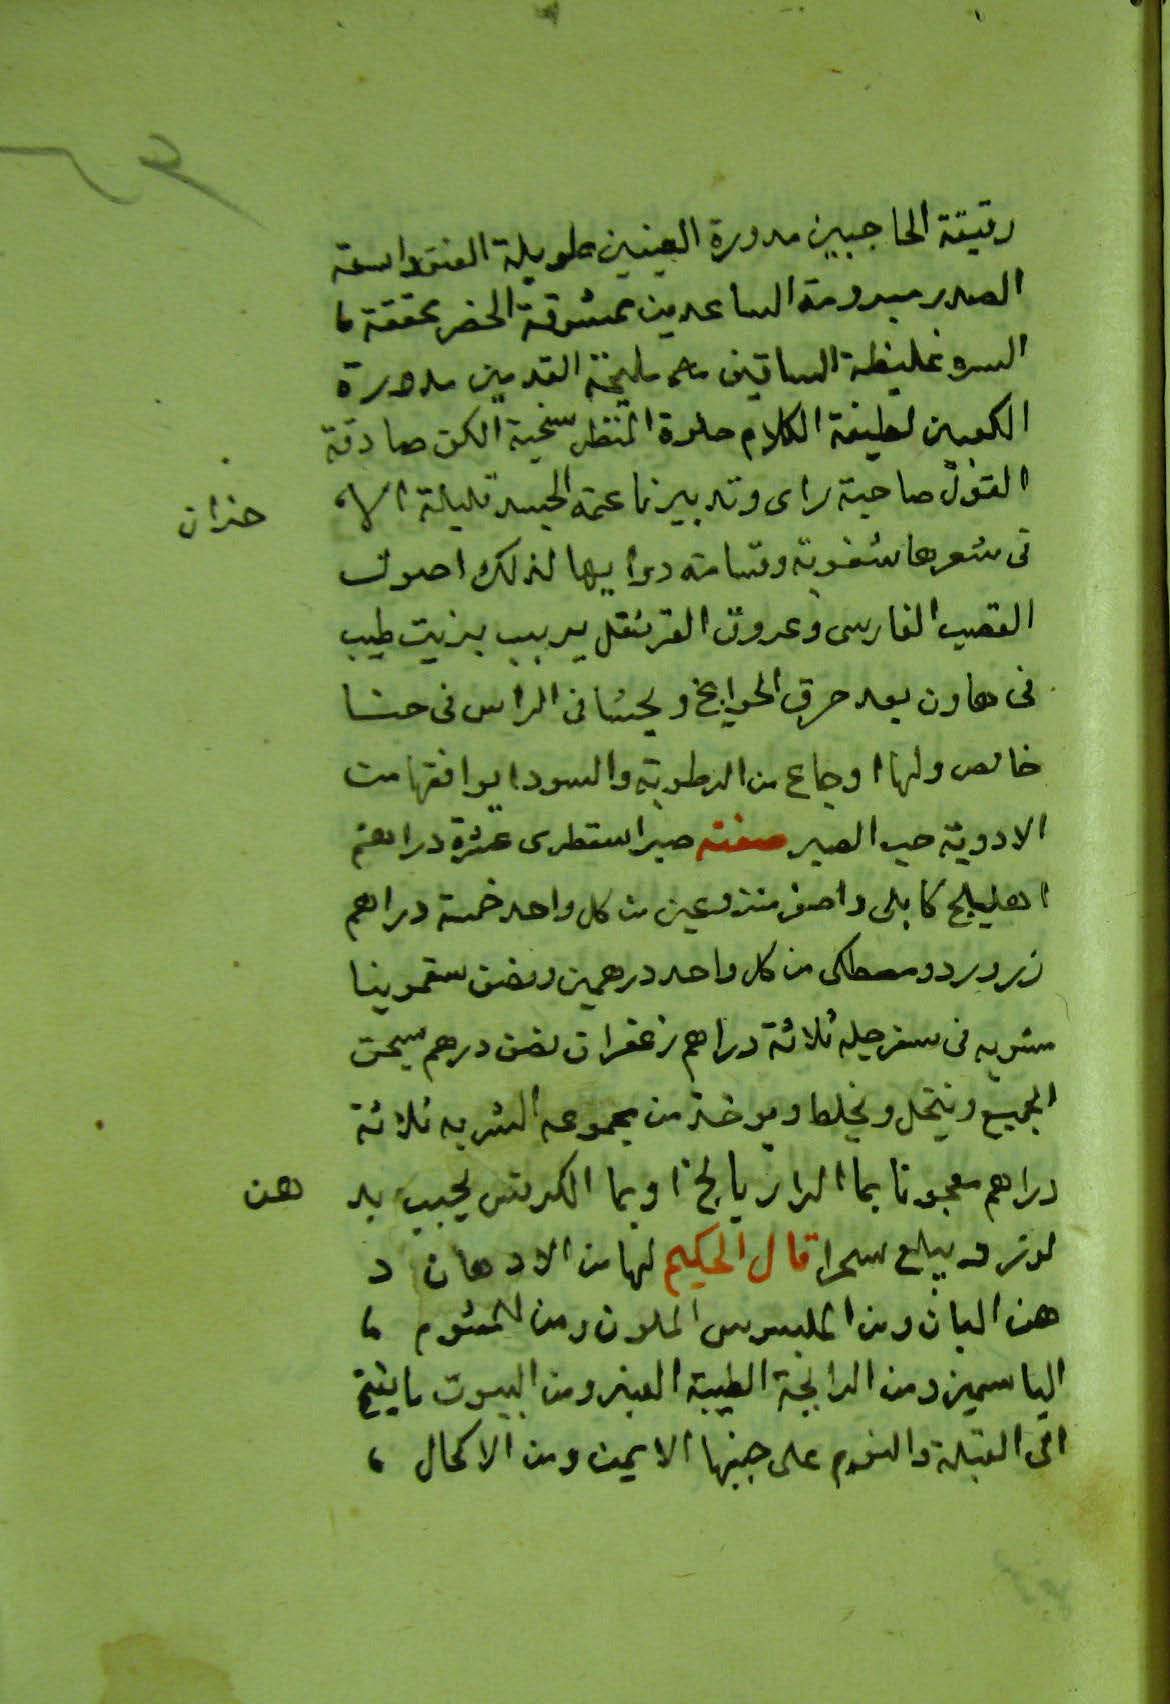 رقيقة الحاجبين مدورة العينين طويلة العنق واسعة
الصدر مبرومة الساعدين ممشوقة الخصر محققة
السره غليظة الساقين مليحة القدمين مدورة
الكعبين لطيفة الكلام حلوة المنظر سخية الكف صادقة
القول صاحبة راى وتدبير ناعمة الجسد قليلة الا
حزان
فى شعرها شقوبة وقسامة دوايها لذلك اصول
القصب الفارسى وعروق القرنفل يربب بزيت طيب
فى هاون بعد حرق الحوايج ويحشا فى الراس فى حنا
خالص ولها اوجاع من الرطوبة والسودا يوافقها من
الادوية حب الصبر صفته صبر اسقطرى عشرة دراهم
اهليلج كابلى واصفر منزوعين من كل واحد خمسة دراهم
زر ورد ومصطكى من كل واحد درهمين ونصف سقمونيا
مشويه فى سفرجله ثلاثة دراهم زعفران نصف درهم يسحق
الجميع وينخل ويخلط ويوخذ من مجموعه الشربه ثلاثة
دراهم معجونا بما الرازيانج او بما الكرفس يحبب بد
هن
لوز ويبلع سحرا قال الحكيم لها من الادهان د
هن البان ومن الملبوس الملون ومن المشموم
الياسمين ومن الرايحة الطيبة العنبر ومن البيوت ما يفتح
الى القبلة والنوم على جنبها الايمن ومن الاكحال